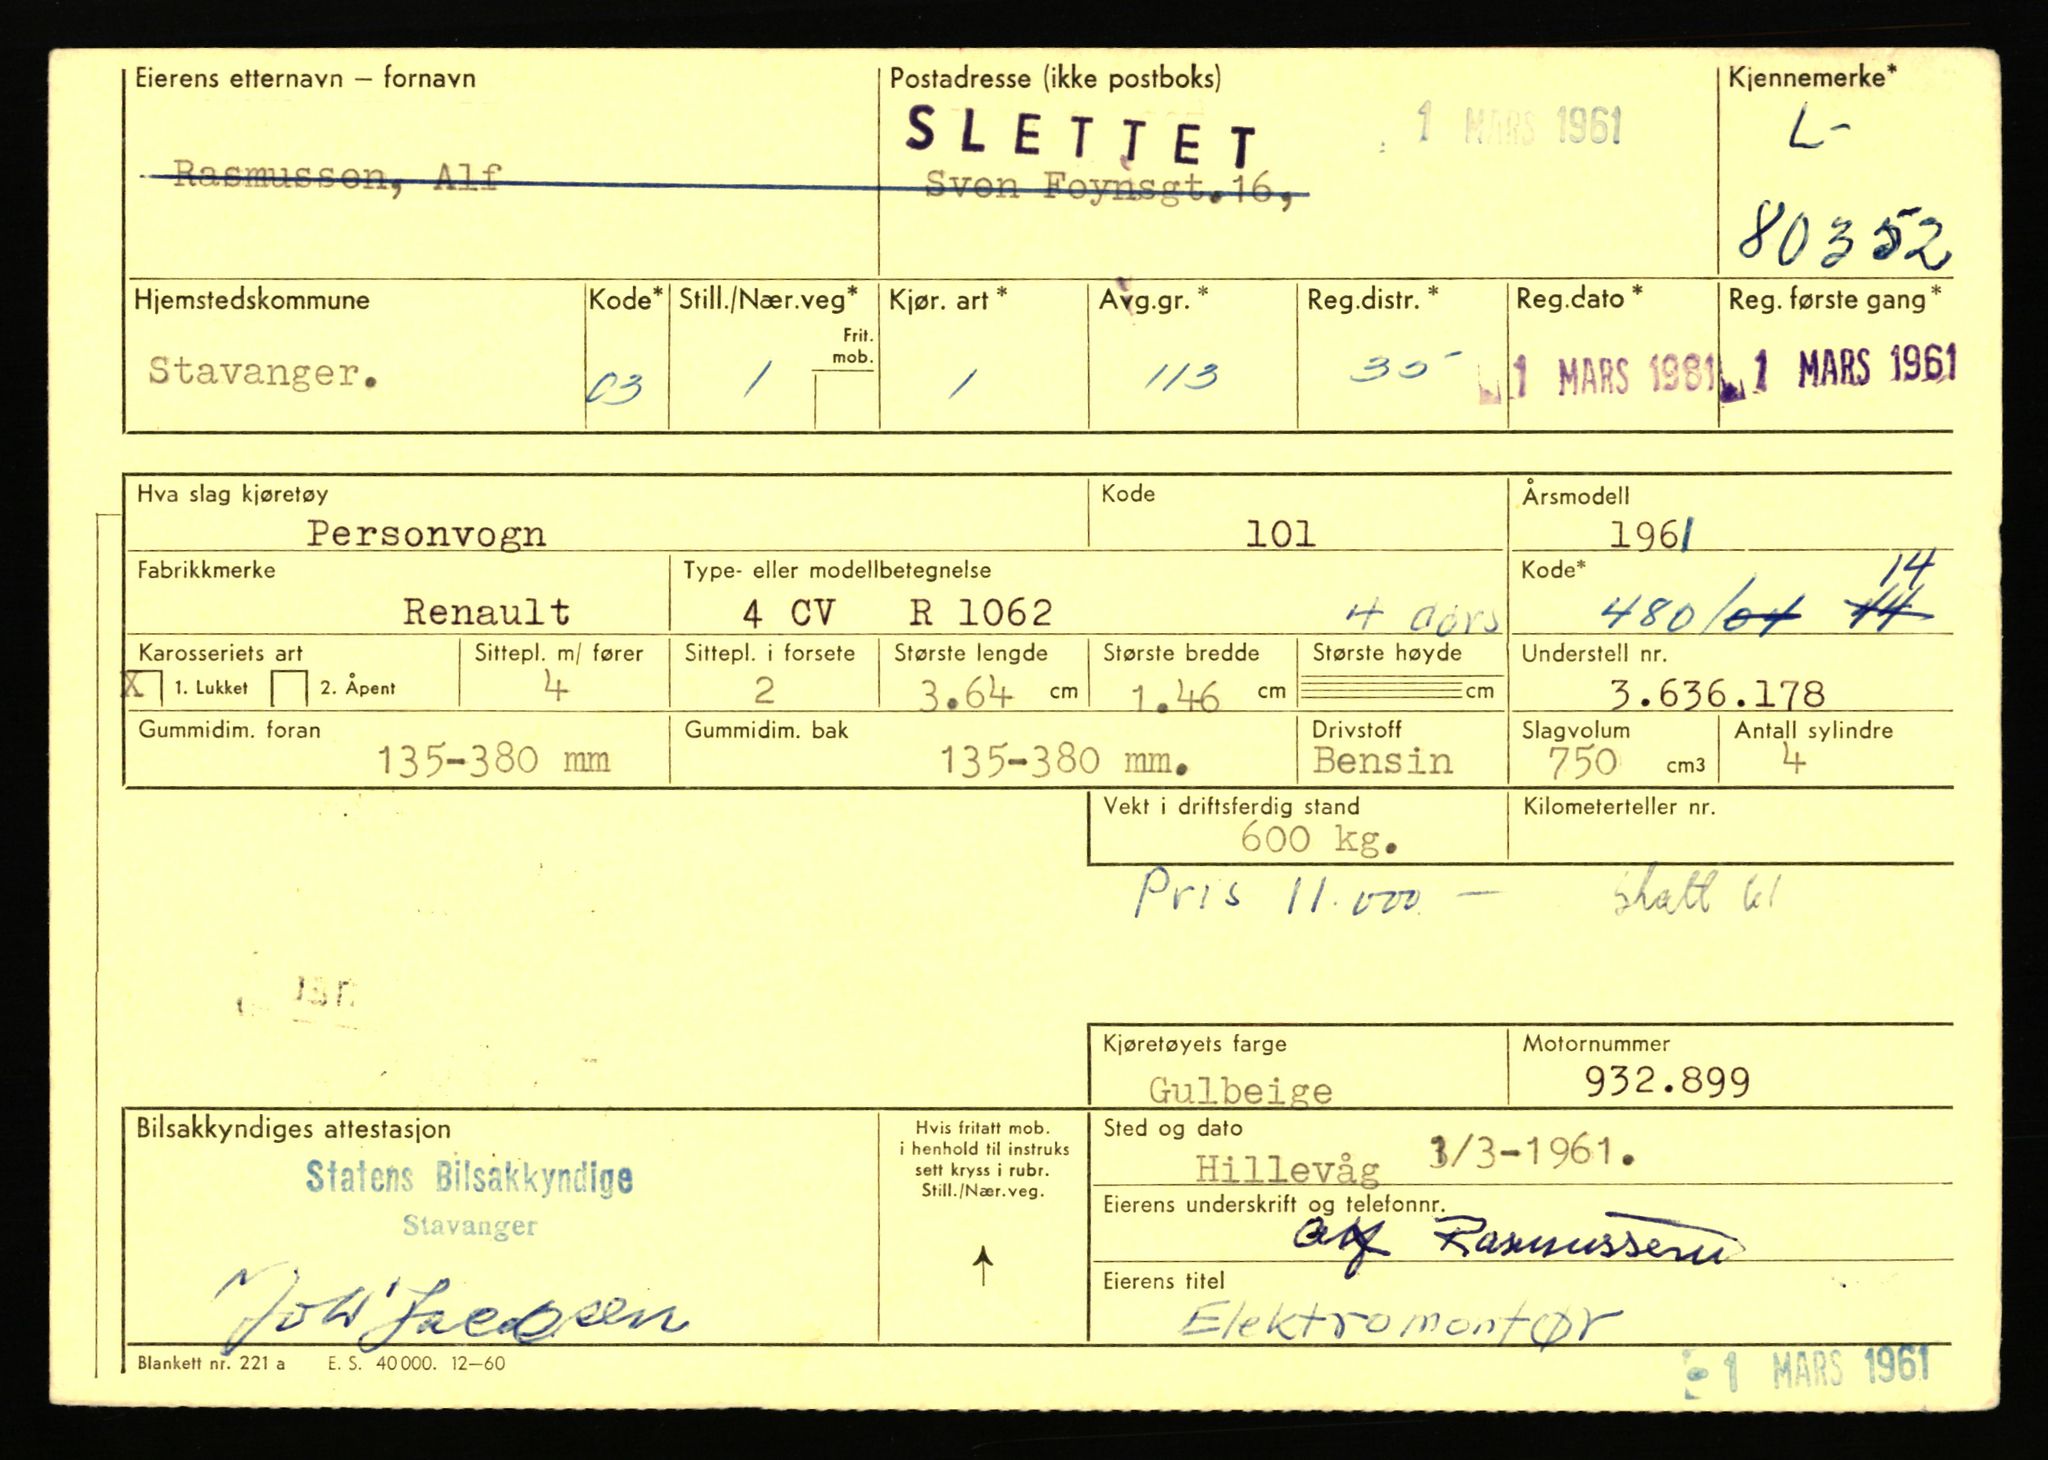 Eierens etternavn – fornavn
Rasmusson, Alf
Postadresse (ikke postboks)
SLETTET
1 MARS 1961
Sven Foynsgt.16,
Kjennemerke*
L-
80352
Hjemstedskommune
Stavanger.
Kode*
03
Still./Nær.veg*
1
Frit.
mob.
Kjør. art *
1
Avg.gr. *
113
Reg.distr. *
35
Reg.dato *
1 MARS 1961
Reg. første gang *
1 MARS 1961
Hva slag kjøretøy
Personvogn
Kode
101
Årsmodell
1961
Fabrikkmerke
Renault
Type- eller modellbetegnelse
4 CV R 1062
4 dørs
Kode*
14
480/04 44
Karosseriets art
X 1. Lukket 2. Åpent
Sittepl. m/ fører
4
Sittepl. i forsete
2
Største lengde
3.64 cm
Største bredde
1.46 cm
Største høyde
cm
Understell nr.
3.636.178
Gummidim. foran
135-380 mm
Gummidim. bak
135-380 mm.
Drivstoff
Bensin
Slagvolum
750 cm3
Antall sylindre
4
Vekt i driftsferdig stand
600 kg.
Kilometerteller nr.
Pris 11.000 —
Kjøretøyets farge
Gulbeige
Motornummer
932.899
Bilsakkyndiges attestasjon
Statens Bilsakkyndige
Stavanger
Jacobsen
Hvis fritatt mob.
i henhold til instruks
sett kryss i rubr.
Still./Nær.veg.
Sted og dato
Hillevåg 1/3-1961.
Eierens underskrift og telefonnr.
Alf Rasmussen
Eierens titel
Elektromontør
Blankett nr. 221 a E. S. 40 000. 12–60
1 MARS 1961